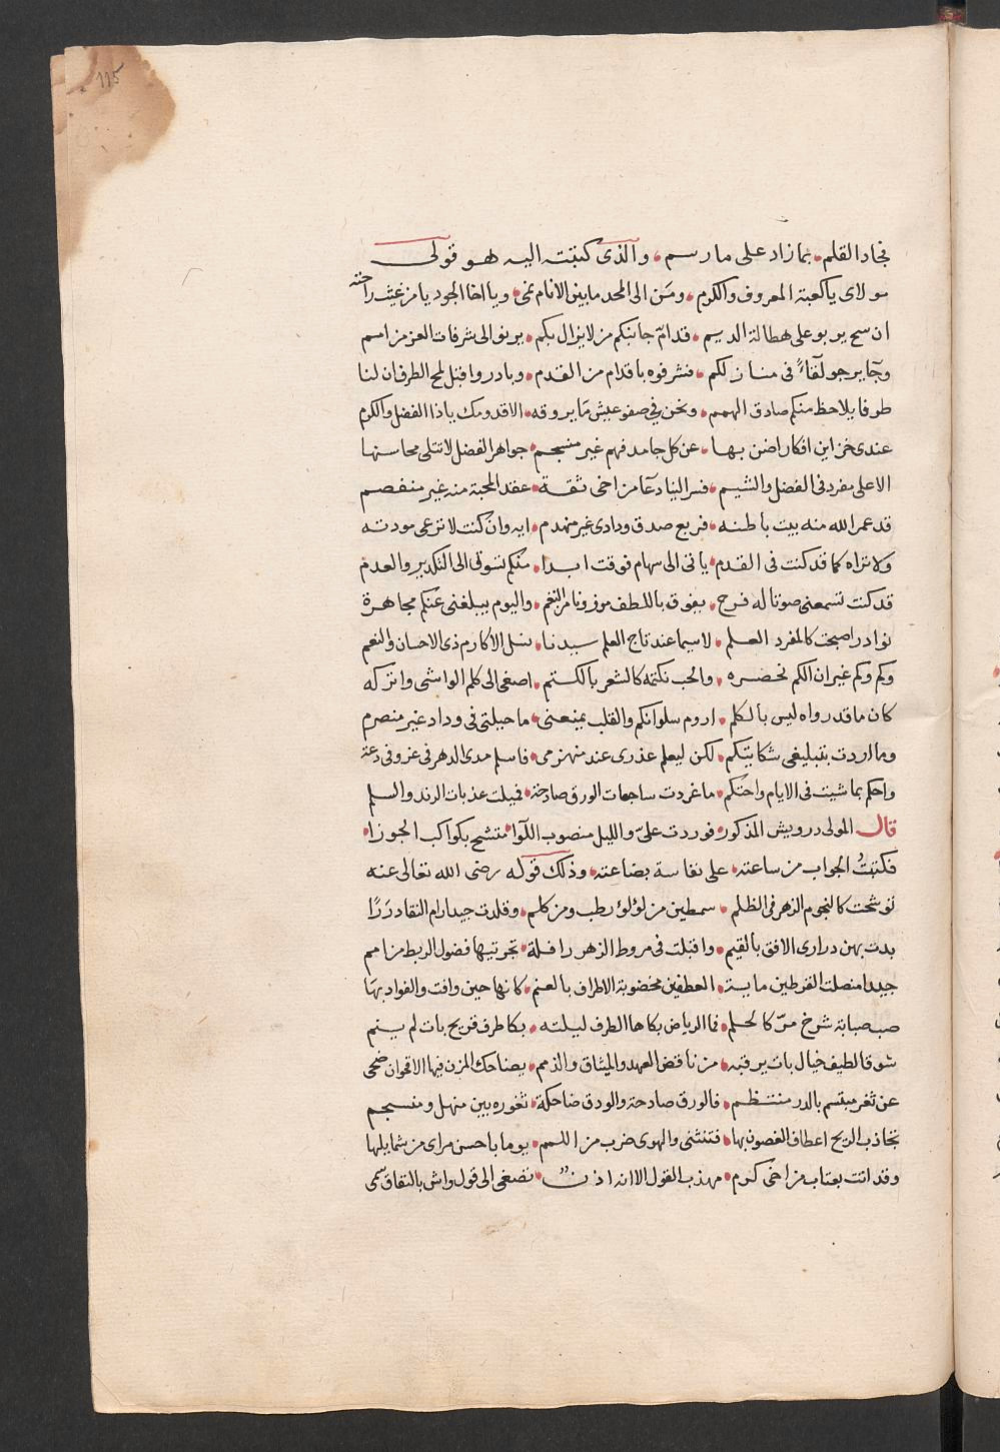 115
فجاد القلم، بما زاد على ما رسم، والذي كتبته اليه هو قولى
مولاى ياكعبة المعروف والكرم، ومن الى المجد مابين الانام نمى، ويا اخا الجود يا من غيث راحته
ان سح يربو على هطالة الديم، قد امّ جانبكم من لا يزال بكم، يرنو الى شرفات العز من امم
وجا يرجو لقاءً فى منازلكم، فشرفوه باقدام من القدم، وبادروا قبل لمح الطرف ان لنا
طرفا يلاحظ منكم صادق الهمم، ونحن في صفو عيش ما يروقه، الا قدومك ياذا الفضل والكرم
عندى خزاين افكار اضن بها، عن كل جامد فهم غير منسجم، جواهر الفضل لا تتلى محاسنها
الا على مفرد فى الفضل والشيم، فسر الينا دعا من اخى ثقة، عقد المحبة منه غير منفصم
قد عمر الله منه بيت باطنه، فربع صدق ودادى غير منهدم، ايه وان كنت لا ترعى مودته
ولا تراه كما قد كنت فى القدم، ياتى الى سهام فوقت ابدا، منكم تسوقى الى التكدير والعدم
قد كنت تسمعنى صوتا له فرح، يفوق باللطف موزونا من النغم، واليوم يبلغنى عنكم مجاهرة
نوادر اصبحت كالمفرد العلم، لاسيما عند تاج العلم سيدنا، نسل الاكارم ذى الاحسان والنعم
وكم وكم غير ان الكم تحصره، والحب نكتمه كالشعر بالكتم، اصغى الى كلم الواشى واتركه
كان ماقد رواه ليس بالكلم، اروم سلوانكم والقلب يمنعنى، ما حيلتى فى وداد غير منصرم
وما اردت بتبليغى شكايتكم، لكن ليعلم عذرى عند منهزمى، فاسلم مدى الدهر فى عز وفى دعة
واحكم بما شيت فى الايام واحتكم، ما غردت ساجعات الورق صادحة، فميلت عذبات الرند والسلم
قال المولى درويش المذكور، فوردت علىّ والليل منصوب اللوا، متشح بكواكب الجوزا،
فكتبتُ الجواب من ساعته، على نفاسة بضاعته، وذلك قوله رضى الله تعالى عنه
توشحت كالنجوم الزهر فى الظلم، سمطين من لؤلؤ رطب ومن كلم، وقلدت جيد ارام النقا دررًا
بدت بهن درارى الافق بالقيم، واقبلت فى مروط الزهر رافلة، تجر تيها فضول الربط من امم
جيدا منصلت القرطين مايسة، العطفين مخضوبة الاطراف بالعنم، كانها حين وافت والفواد بها
صب صبابة شرخ مرّ كالحلم، فما الرياض بكاها الطرف ليلته، بكا طرف قريح بات لم ينم
شوقا لطيف خيال بات يرقبه، من ناقض العهد والميثاق والذمم، يضاحك المزن فيها الاقحوان ضحى
عن ثغر مبتسم بالدر منتظم، فالورق صادحة والودق ضاحكة، ثغوره بين منهل ومنسجم
تجاذب الريح اعطاف الغصون بها، فتنثنى والهوى ضرب من اللمم، يوما باحسن مراى من شمايلها
وقد اتت بعتاب من اخى كرم، مهذب القول الا انه اذن، تصغى الى قول واش بالنفاق سمى